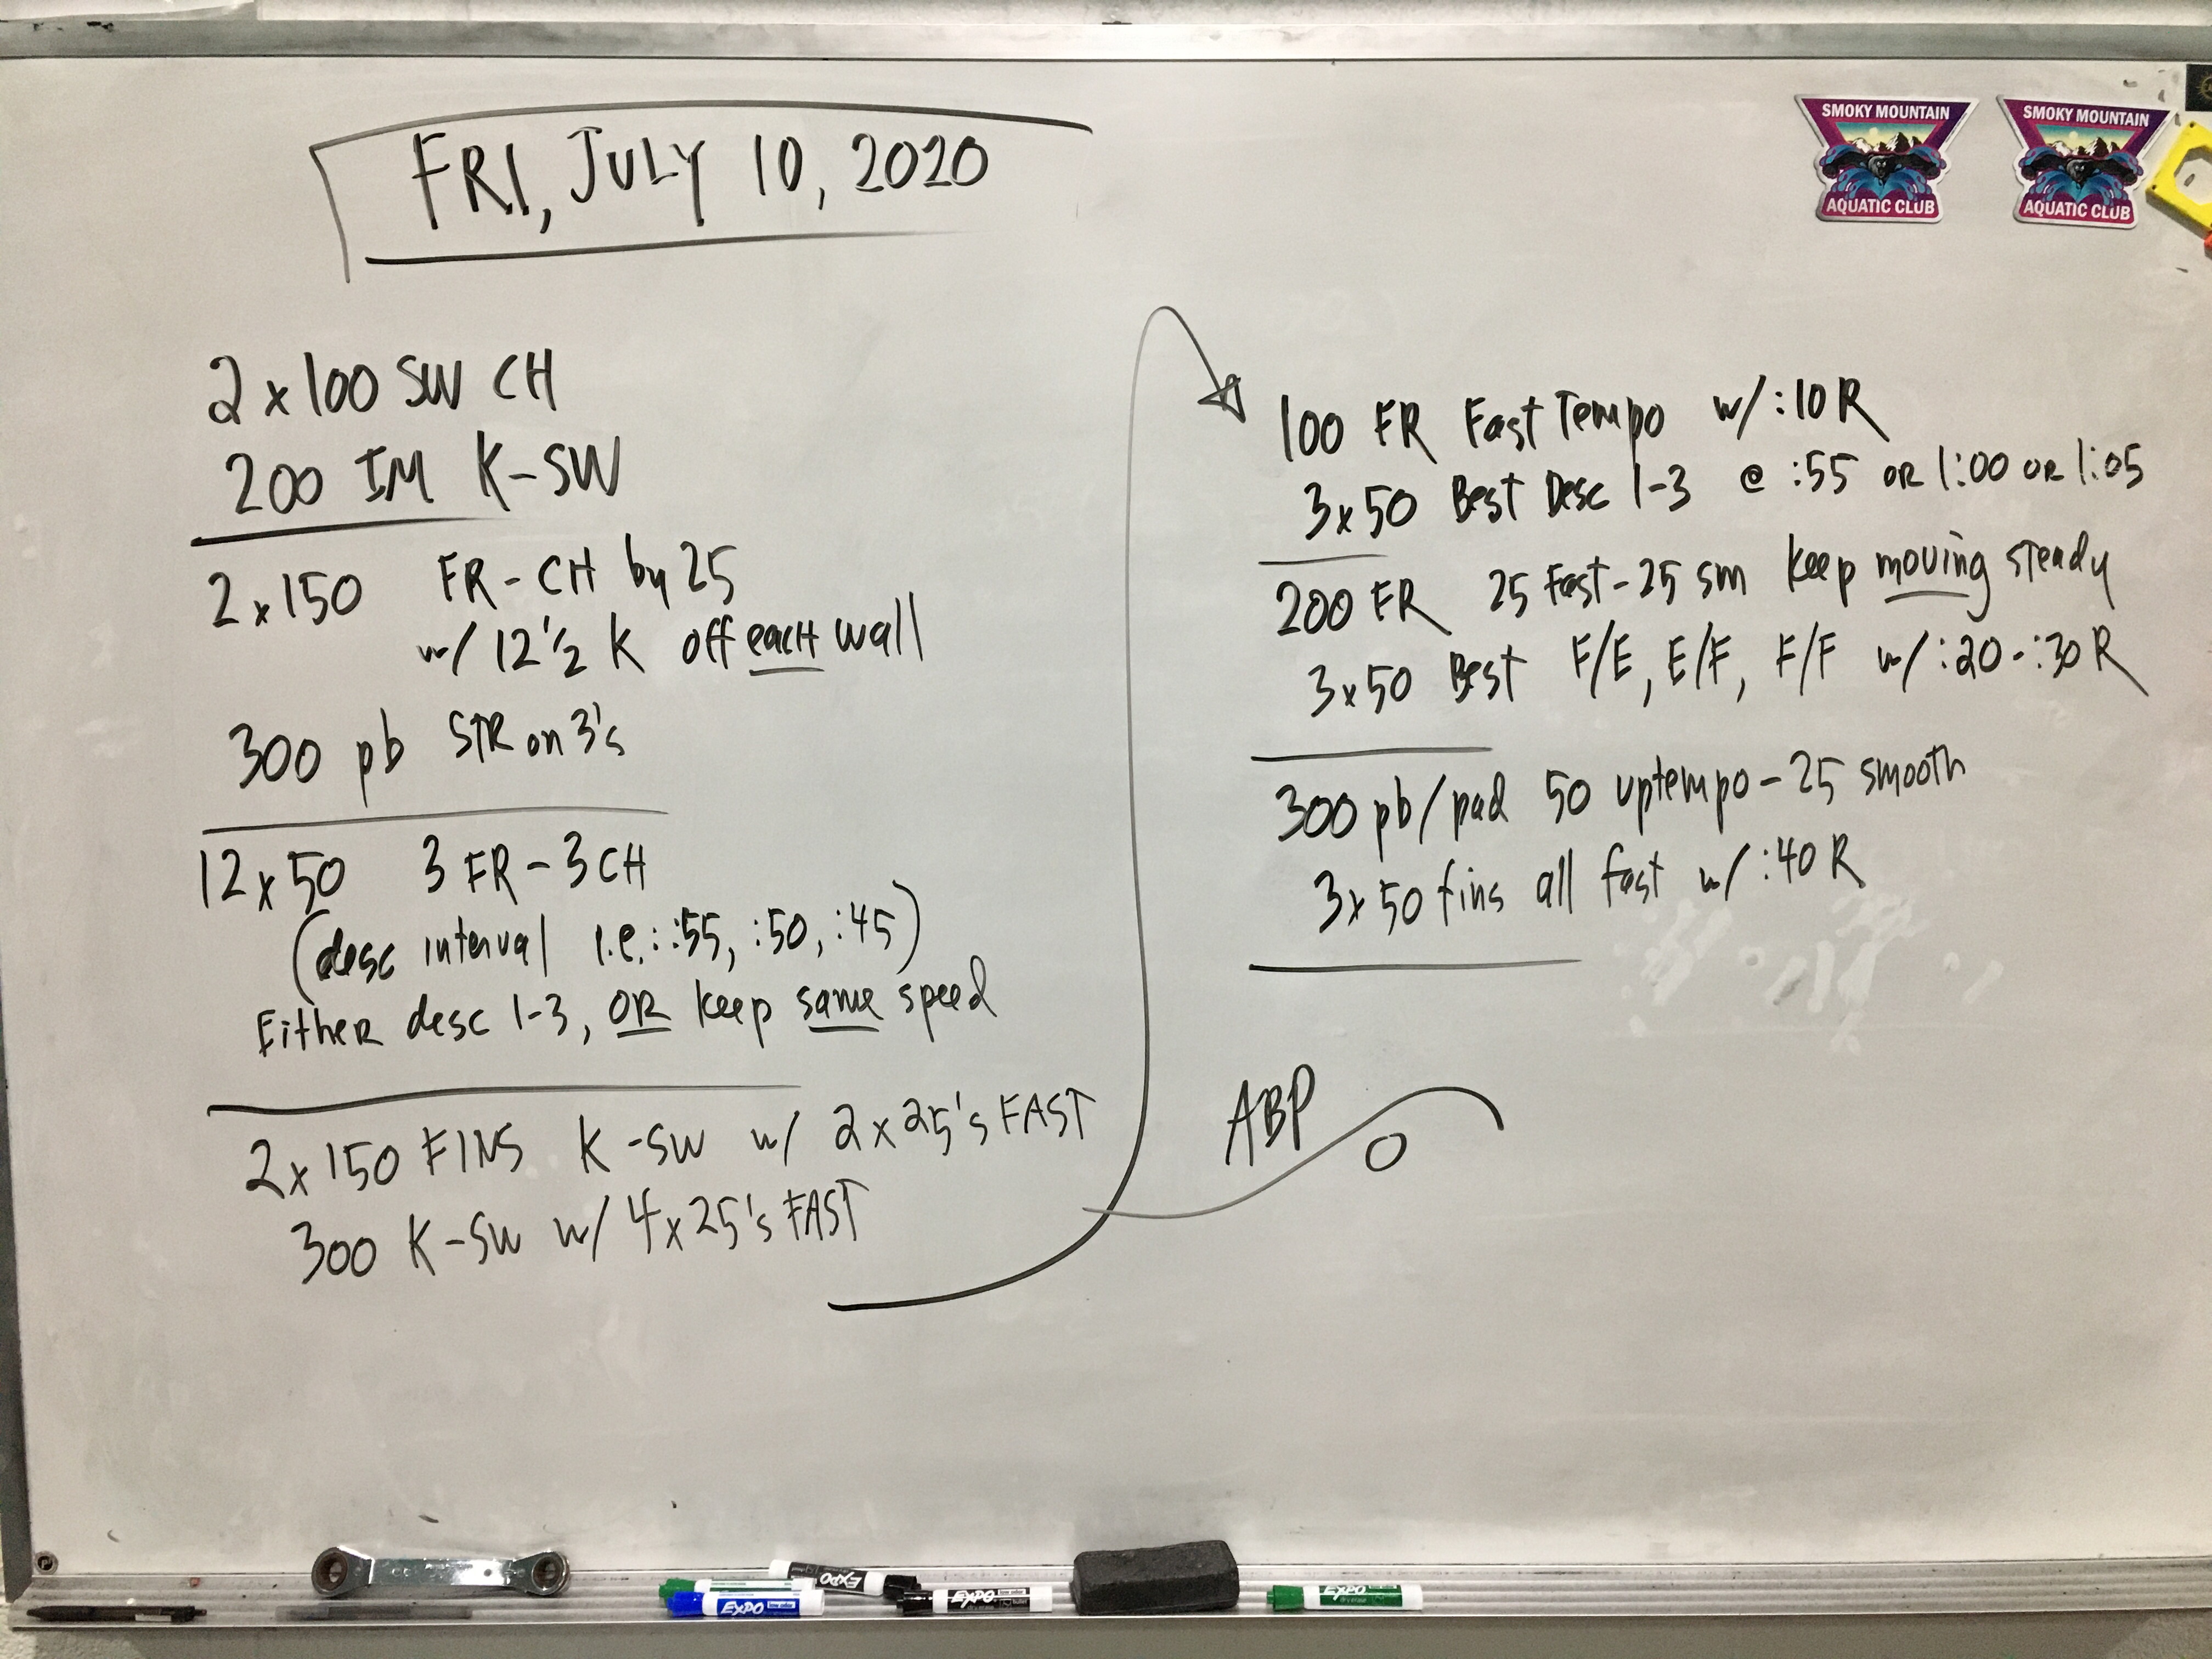 FRI, JULY 10, 2020
2 x 100 SW CH
200 IM K-SW
2 x 150 FR - CH by 25
w/ 12 1/2 K off each wall
300 pb STR on 3's
12 x 50 3 FR - 3 CH
(desc interval i.e.: :55, :50, :45)
Either desc 1-3, OR keep same speed
2 x 150 FINS K-SW w/ 2 x 25's FAST
300 K-SW w/ 4 x 25's FAST
100 FR Fast Tempo w/ :10 R
3 x 50 Best Desc 1-3 @ :55 OR 1:00 OR 1:05
200 FR 25 Fast - 25 sm keep moving steady
3 x 50 Best F/E, E/F, F/F w/ :20 - :30 R
300 pb/pad 50 uptempo - 25 smooth
3 x 50 fins all fast w/ :40 R
ABP
SMOKY MOUNTAIN
AQUATIC CLUB
SMOKY MOUNTAIN
AQUATIC CLUB
EXPO
EXPO
EXPO
EXPO